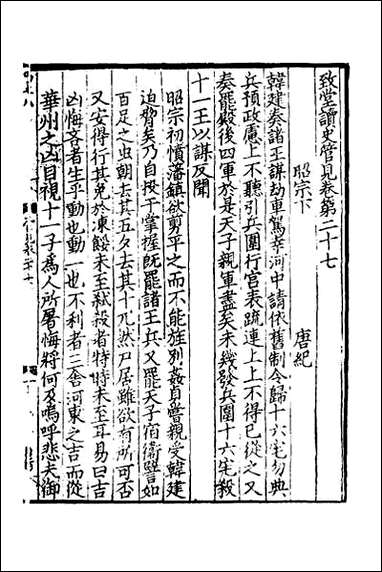 致堂讀史管見卷第二十七
昭宗下　唐紀
韓建奏諸王謀劫車駕幸河中請依舊制令歸十六宅勿典
兵預政慮上不聽引兵圍行宮表疏連上上不得已從之又
奏罷殿後四軍於是天子親軍盡矣未幾發兵圍十六宅殺
十一王以謀反聞
昭宗初憤藩鎮欲剪平之而不能旌別姦自曽親受韓建
迫脅矣乃自投于掌握既罷諸王兵又罷天子宿衛譬如
百足之虫朝去其五夕去其十兀然尸居雖欲有所可否
又安得行其免於凍餒未至弒殺者特時未至耳易曰吉
凶悔吝者生乎動也動一也不利者三舎河東之吉而從
華州之凶目視十一子爲人所屠悔將何及嗚呼悲夫御